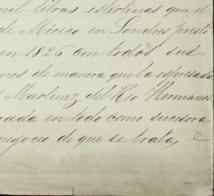 mil libras esterlinas que el
de Mexico en Londres prestó
en 1826 con todos sus
nes de manera que la expresada
Martinez del Rio Hermanos
rada en todo como sucesora
negocio de que se trata, e